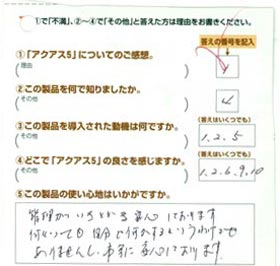 ①で「不満」、②~④で「その他」と答えた方は理由をお書きください。
答えの番号を記入
①「アクアス5」についてのご感想。
(理由 ) 4
②この製品を何で知りましたか。
(その他 ) 4
③この製品を導入された動機は何ですか。 (答えはいくつでも)
(その他 ) 1.2.5
④どこで「アクアス5」の良さを感じますか。 (答えはいくつでも)
(その他 ) 1.2.6.9.10
⑤この製品の使い心地はいかがですか。
管理が 安心 しております
何 自分で何かするというわけでも
ありませんし、非常に安心しております